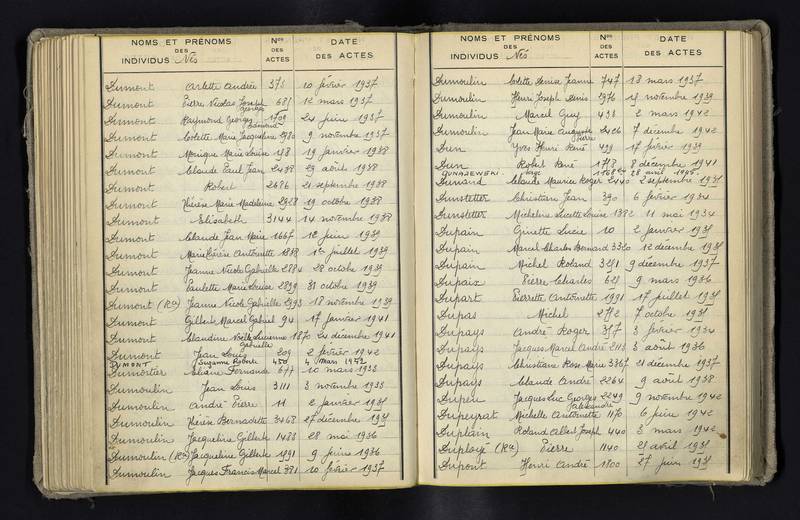 NOMS ET PRÉNOMS DES INDIVIDUS Nés Nos DES ACTES DATE DES ACTES
Dumont Arlette Andrée 373 10 février 1937
Dumont Pierre Nicolas Joseph Georges 685 12 mars 1937
Dumont Raymond Georges 1709 24 juin 1937
Dumont Colette Marie Jacqueline 2980 9 novembre 1937
Dumont Monique Marie Louise 198 19 janvier 1938
Dumont Claude Paul Jean 2498 29 août 1938
Dumont Robert 2686 21 septembre 1938
Dumont Thérèse Marie Madeleine 2928 19 octobre 1938
Dumont Elisabeth 3144 14 novembre 1938
Dumont Claude Jean Marie 1667 12 juin 1939
Dumont Marie Antoinette 1878 1er juillet 1939
Dumont Jeanne Nicole Gabrielle 2884 28 octobre 1939
Dumont Paulette Marie Louise 2899 31 octobre 1939
Dumont (Ron) Jeanne Nicole Gabrielle 2993 18 novembre 1939
Dumont Gilbert Marcel Gabriel 94 17 janvier 1941
Dumont Claudine Noëlle Lucienne Gabrielle 1870 24 décembre 1941
Dumont Jean Louis 209 2 février 1942
DUMONT Suzanne 450 4 mars 1952
Dumortier Eliane Fernande 677 10 mars 1933
Dumoulin Jean Louis 3111 3 novembre 1933
Dumoulin André Pierre 11 2 janvier 1931
Dumoulin Thérèse Bernadette 3468 27 décembre 1931
Dumoulin Jacqueline Gilberte 1483 28 mai 1936
Dumoulin Jacqueline Gilberte 1591 9 juin 1936
Dumoulin Jacques Francis Marcel 381 10 février 1937
NOMS ET PRÉNOMS DES INDIVIDUS Nés Nos DES ACTES DATE DES ACTES
Dumoulin Colette Denise Jeanne 747 18 mars 1937
Dumoulin Henri Joseph Denis 2976 15 novembre 1939
Dumoulin Marcel Guy 438 2 mars 1942
Dumoulin Jean Marie Pierre 2406 7 décembre 1942
Dun Yves Henri René 499 17 février 1939
Dun Robert René 1718 8 décembre 1941
DUNAJEWSKI Serge 28 avril
Dunand Claude Maurice Roger 2440 2 septembre 1931
Dunstetter Christiane Jean 390 6 février 1934
Dunstetter Micheline Lucette Louise 1382 11 mai 1934
Dupain Ginette Lucie 10 2 janvier 1931
Dupain Marcel Charles Bernard 3320 12 décembre 1931
Dupain Michel Roland 3251 9 décembre 1937
Dupaix Pierre Charles 621 9 mars 1936
Dupart Pierrette Antoinette 1991 17 juillet 1931
Dupas Michel 2772 7 octobre 1931
Dupays André Roger 357 3 février 1934
Dupays Jacques Marcel André 2113 3 août 1936
Dupays Christiane Rose Marie 3367 21 décembre 1937
Dupays Claude André 2264 9 août 1938
Dupeu Jacques Luc Georges Alexandre 2249 9 novembre 1942
Dupeyrat Michelle Antoinette 1170 6 juin 1942
Duplain Roland Albert Joseph 440 3 mars 1942
Duployé Pierre 1140 21 avril 1931
Dupont Henri André 1800 27 juin 1931